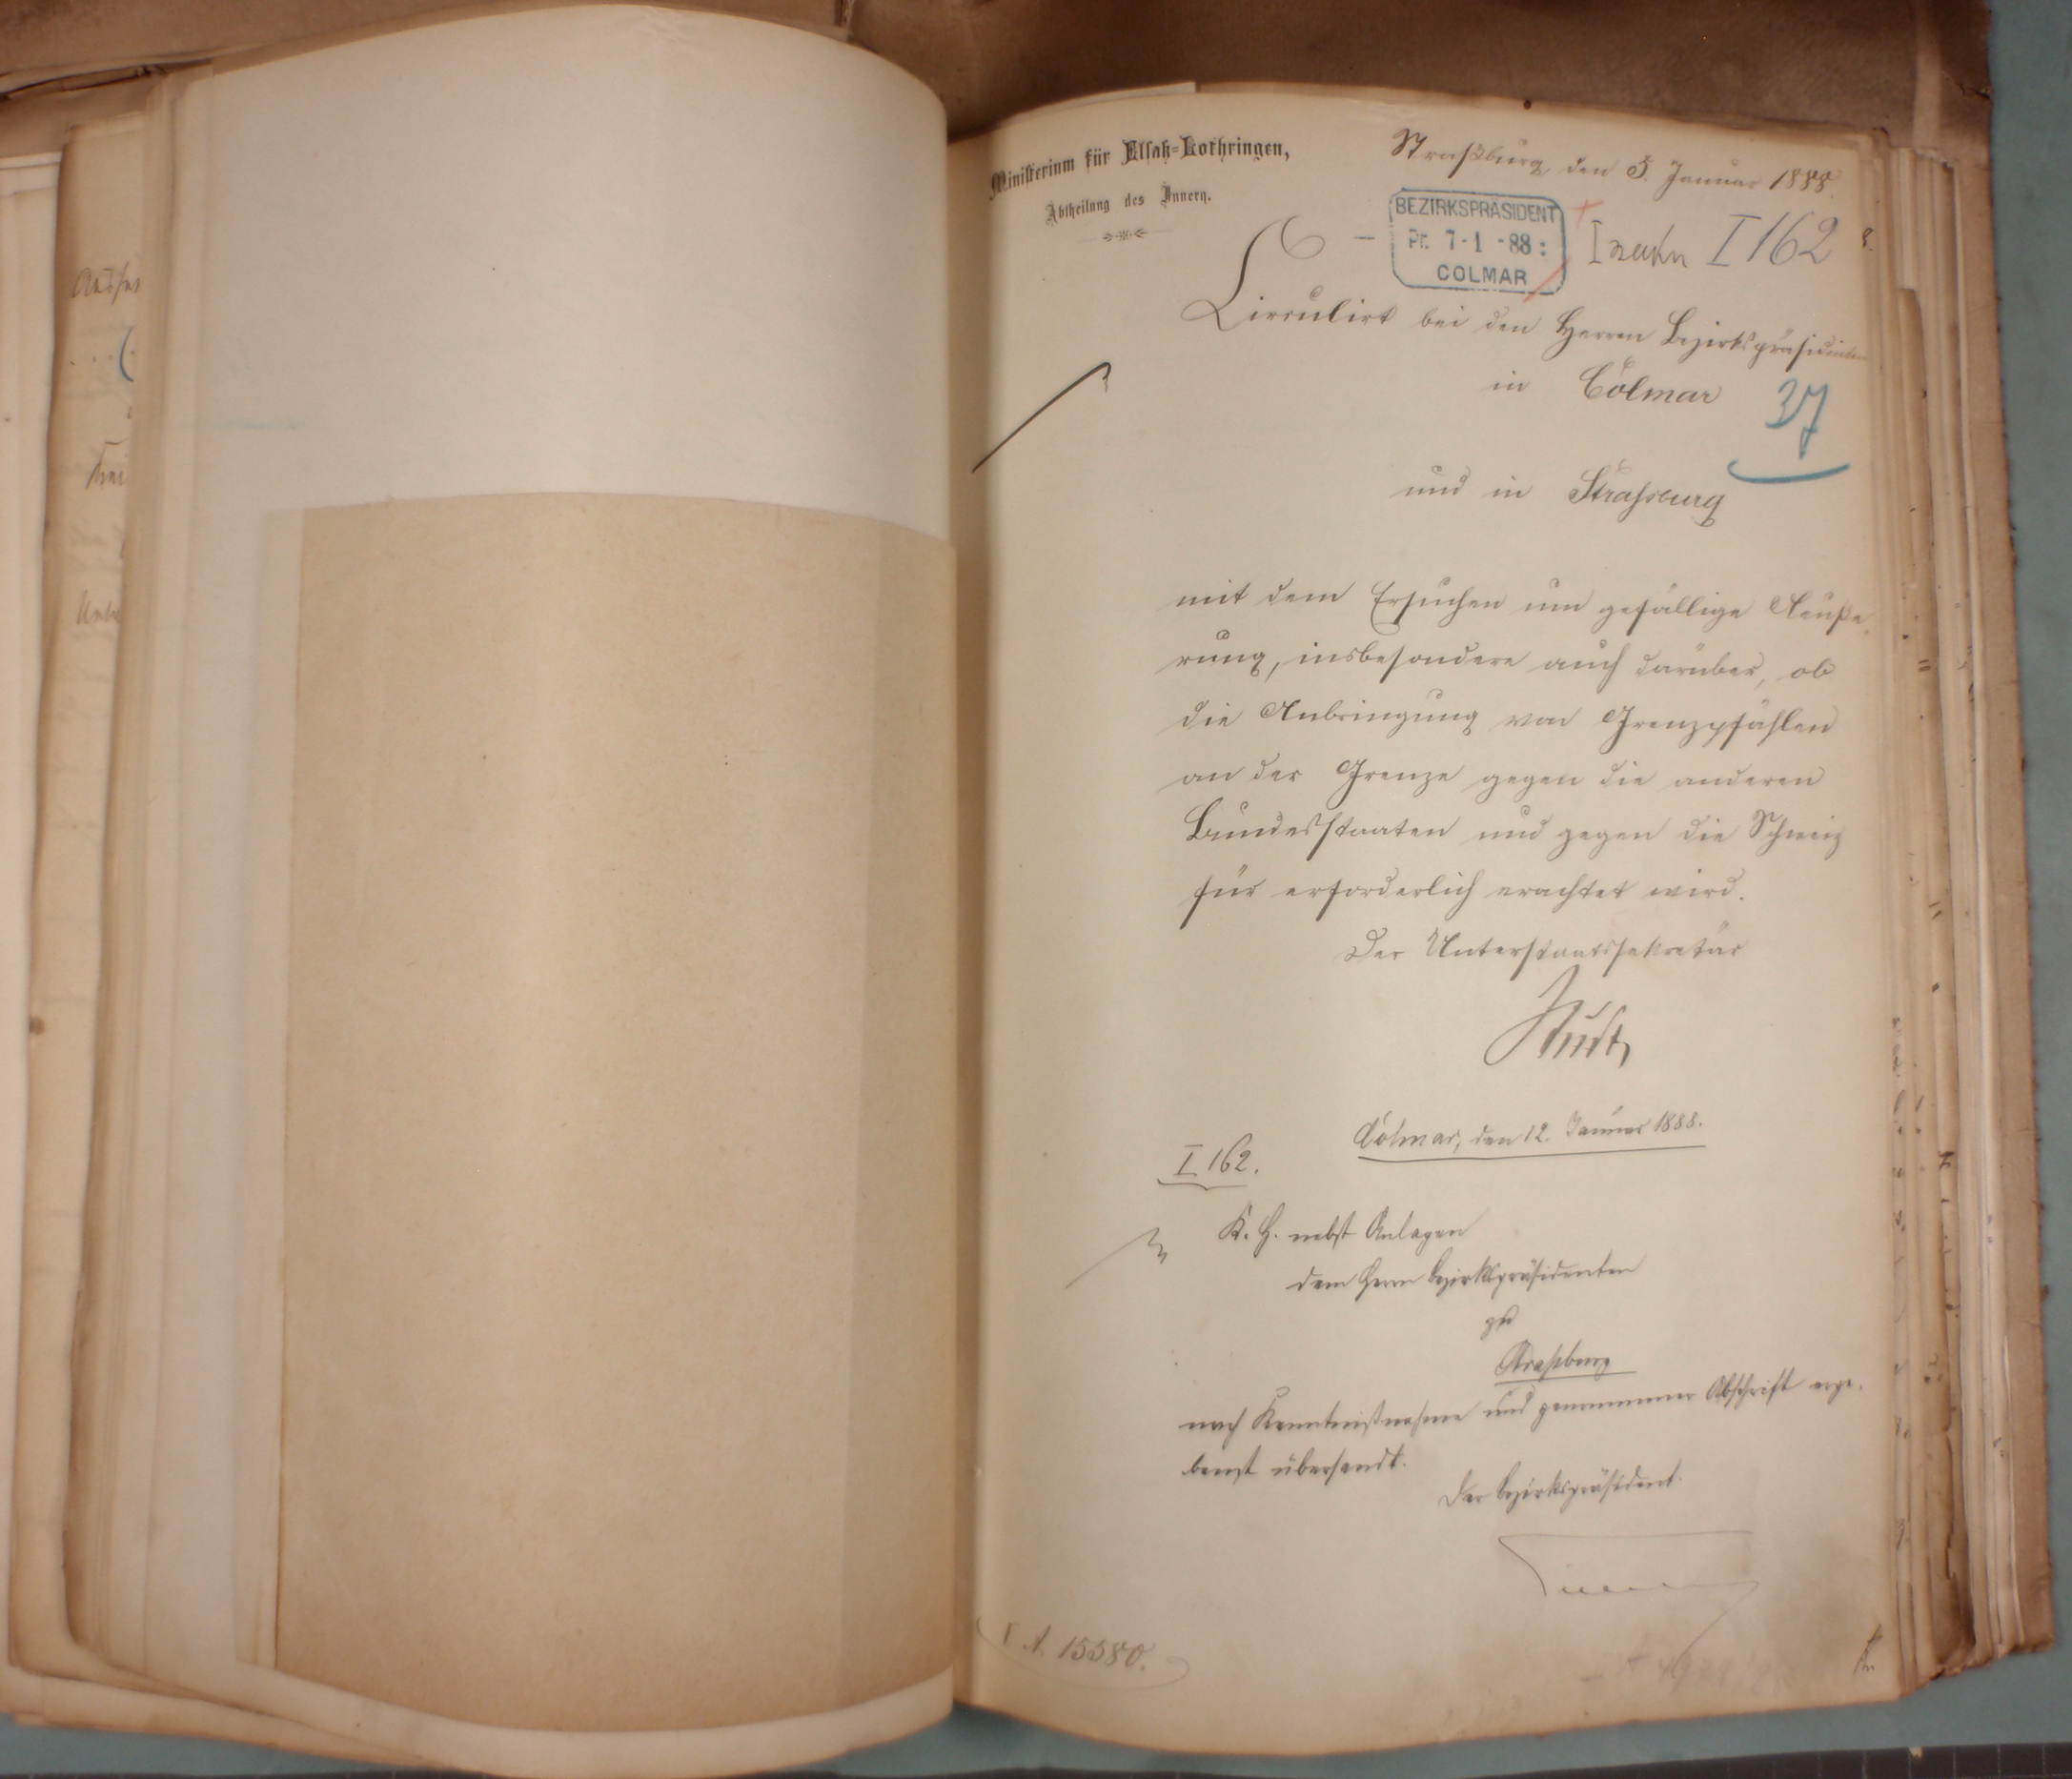 Ministerium für Elsaß-Lothringen,
Abtheilung des Innern.
Straßburg, den 5. Januar 1888.
BEZIRKSPRÄSIDENT
Pr. 7-1-88:
COLMAR
I 162
Circulirt bei den Herren Bezirkspräsidenten
in Colmar
37
und in Strassburg
mit dem Ersuchen um gefällige Aeuße-
rung, insbesondere auch darüber, ob
die Anbringung von Grenzpfählen
an der Grenze gegen die anderen
Bundesstaaten und gegen die Schweiz
für erforderlich erachtet wird.
Der Unterstaatssekretär
Studt
Colmar, den 12. Januar 1888.
I 162.
K. H. nebst Anlagen
dem Herrn Bezirkspräsidenten
zu
Straßburg
nach Kenntnißnahme und genommener Abschrift erge-
benst übersandt.
Der Bezirkspräsident.
I A. 15580.